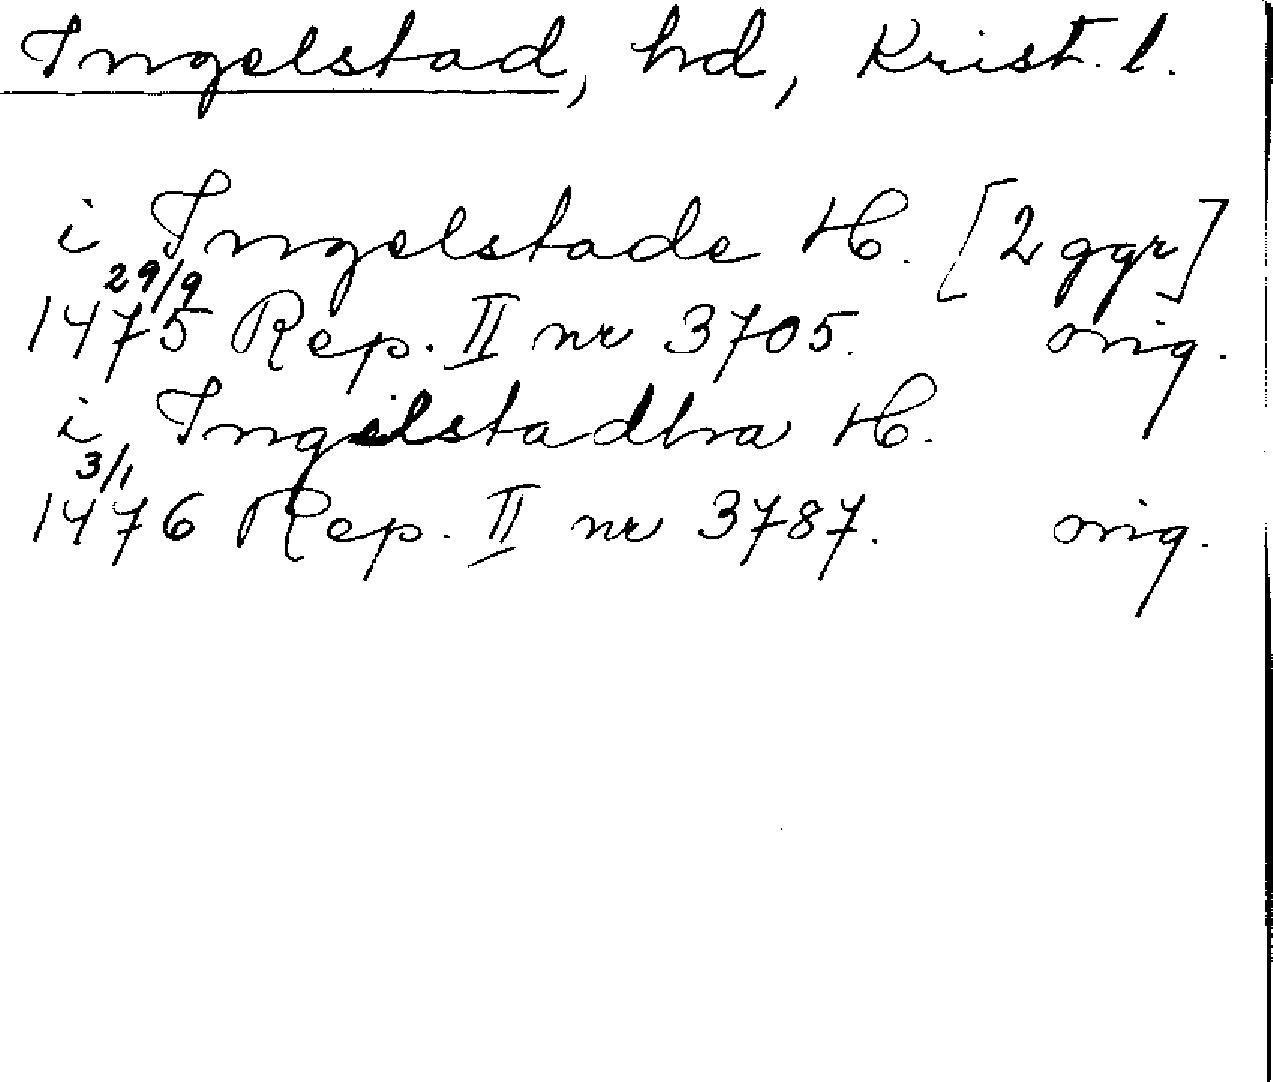 Ingelstad, hd, Krist. l.
i Ingelstade H. [2 ggr]
29/9
1475 Rep. II nr 3705. orig.
i Ingilstadhra H.
3/1
1476 Rep. II nr 3787. orig.